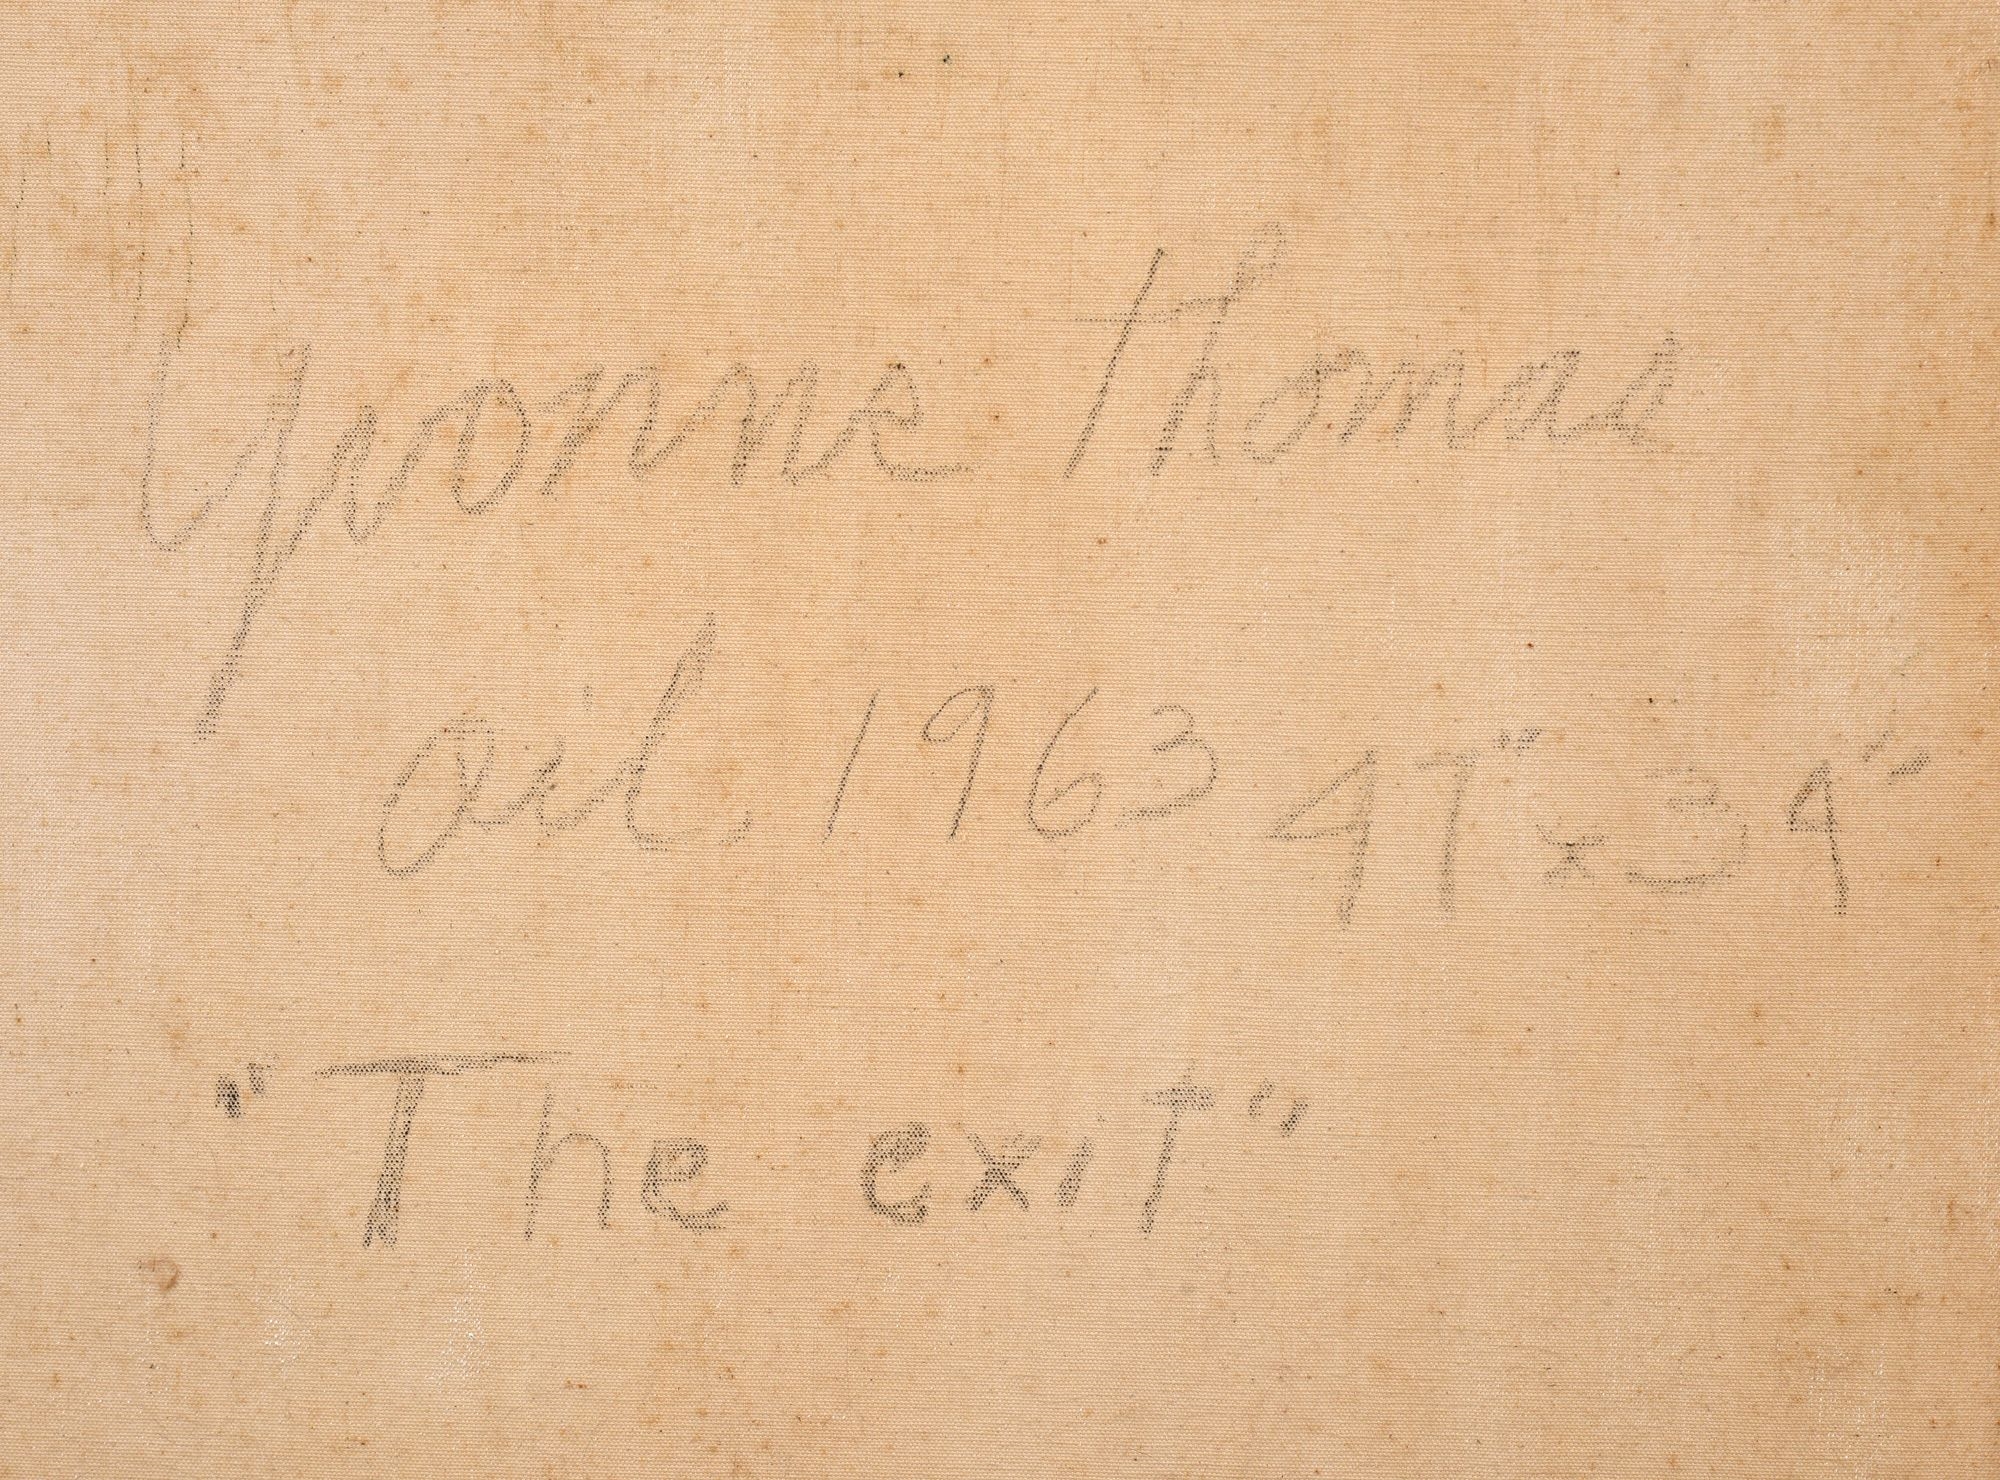 Yvonne Thomas
oil. 1963 47" x 34"
"The exit"